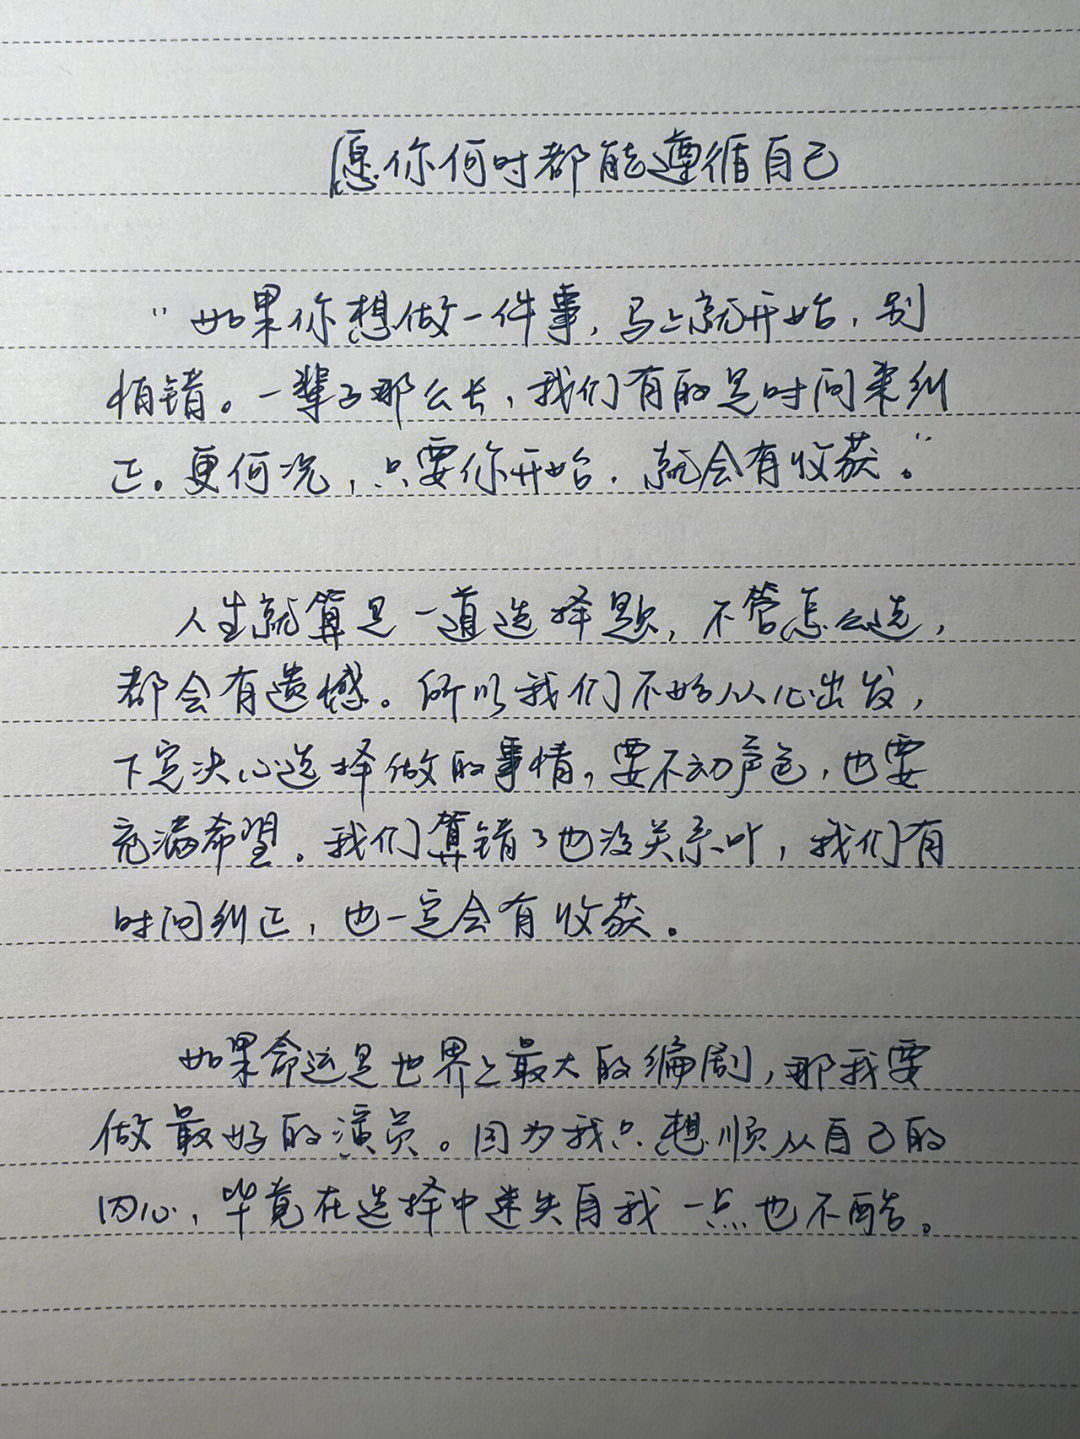 愿你何时都能遵循自己
“如果你想做一件事，马上就开始，别
怕错。一辈子那么长，我们有的是时间来纠
正。更何况，只要你开始，就会有收获。”
人生就算是一道选择题，不管怎么选，
都会有遗憾。所以我们不妨从心出发，
下定决心选择做的事情，要不动声色，也要
充满希望。我们算错了也没关系叶，我们有
时间纠正，也一定会有收获。
如果命运是世界上最大的编剧，那我要
做最好的演员。因为我只想顺从自己的
内心，毕竟在选择中迷失自我一点也不酷。